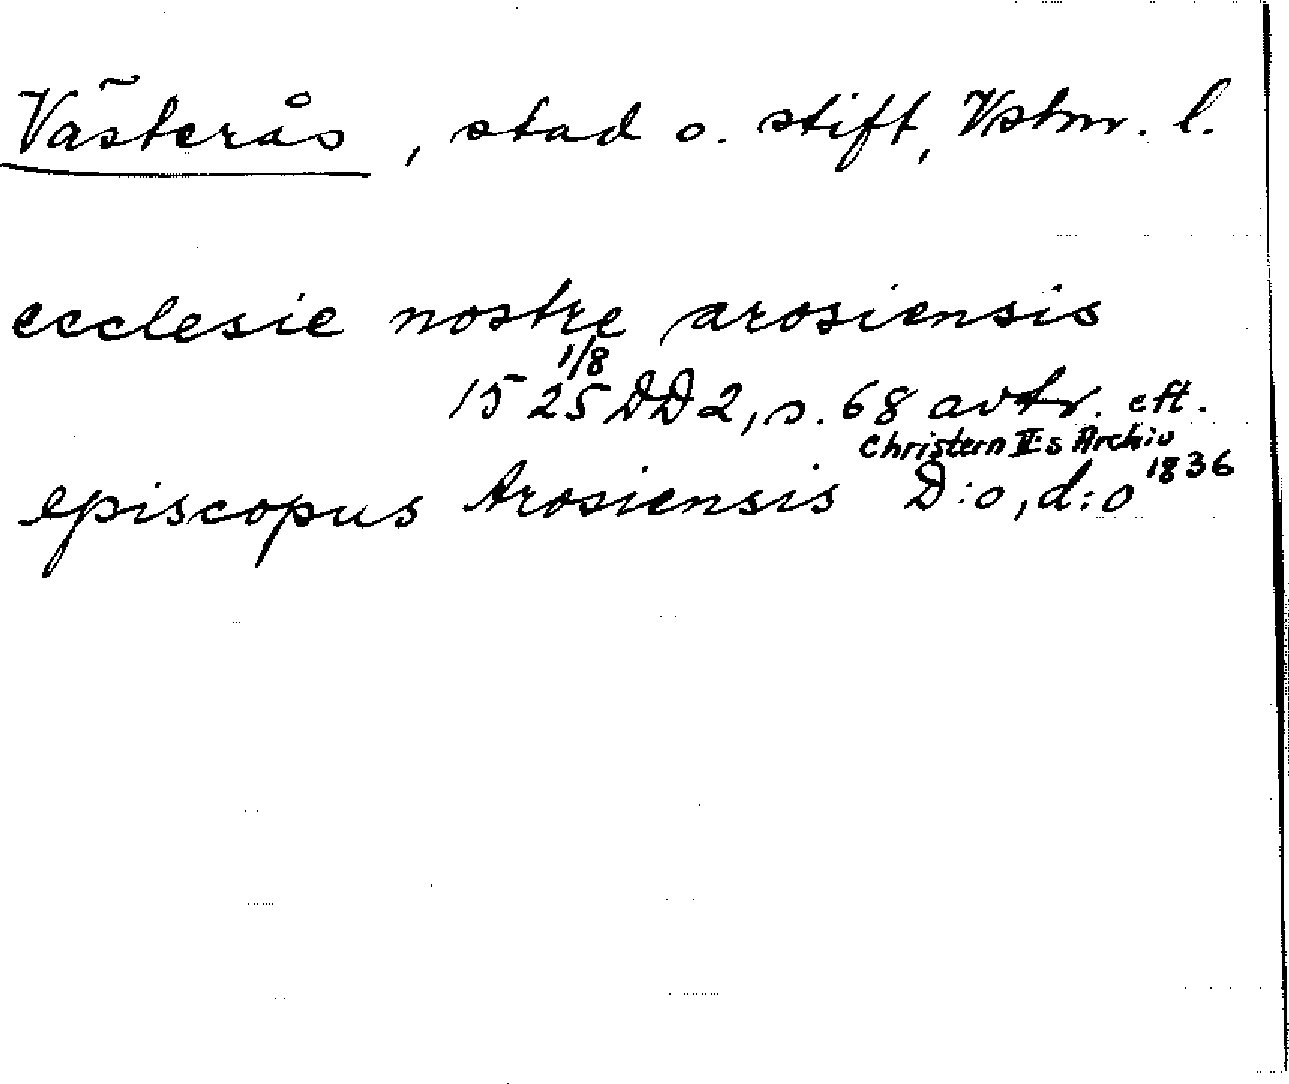 Västerås, stad o. stift, Vstm. l.
ecclesie nostre arosiensis
1525 1/8 DD 2, s. 68 avtr. eft.
Christern II:s Archiv
1836
episcopus Arosiensis D:o, d:o